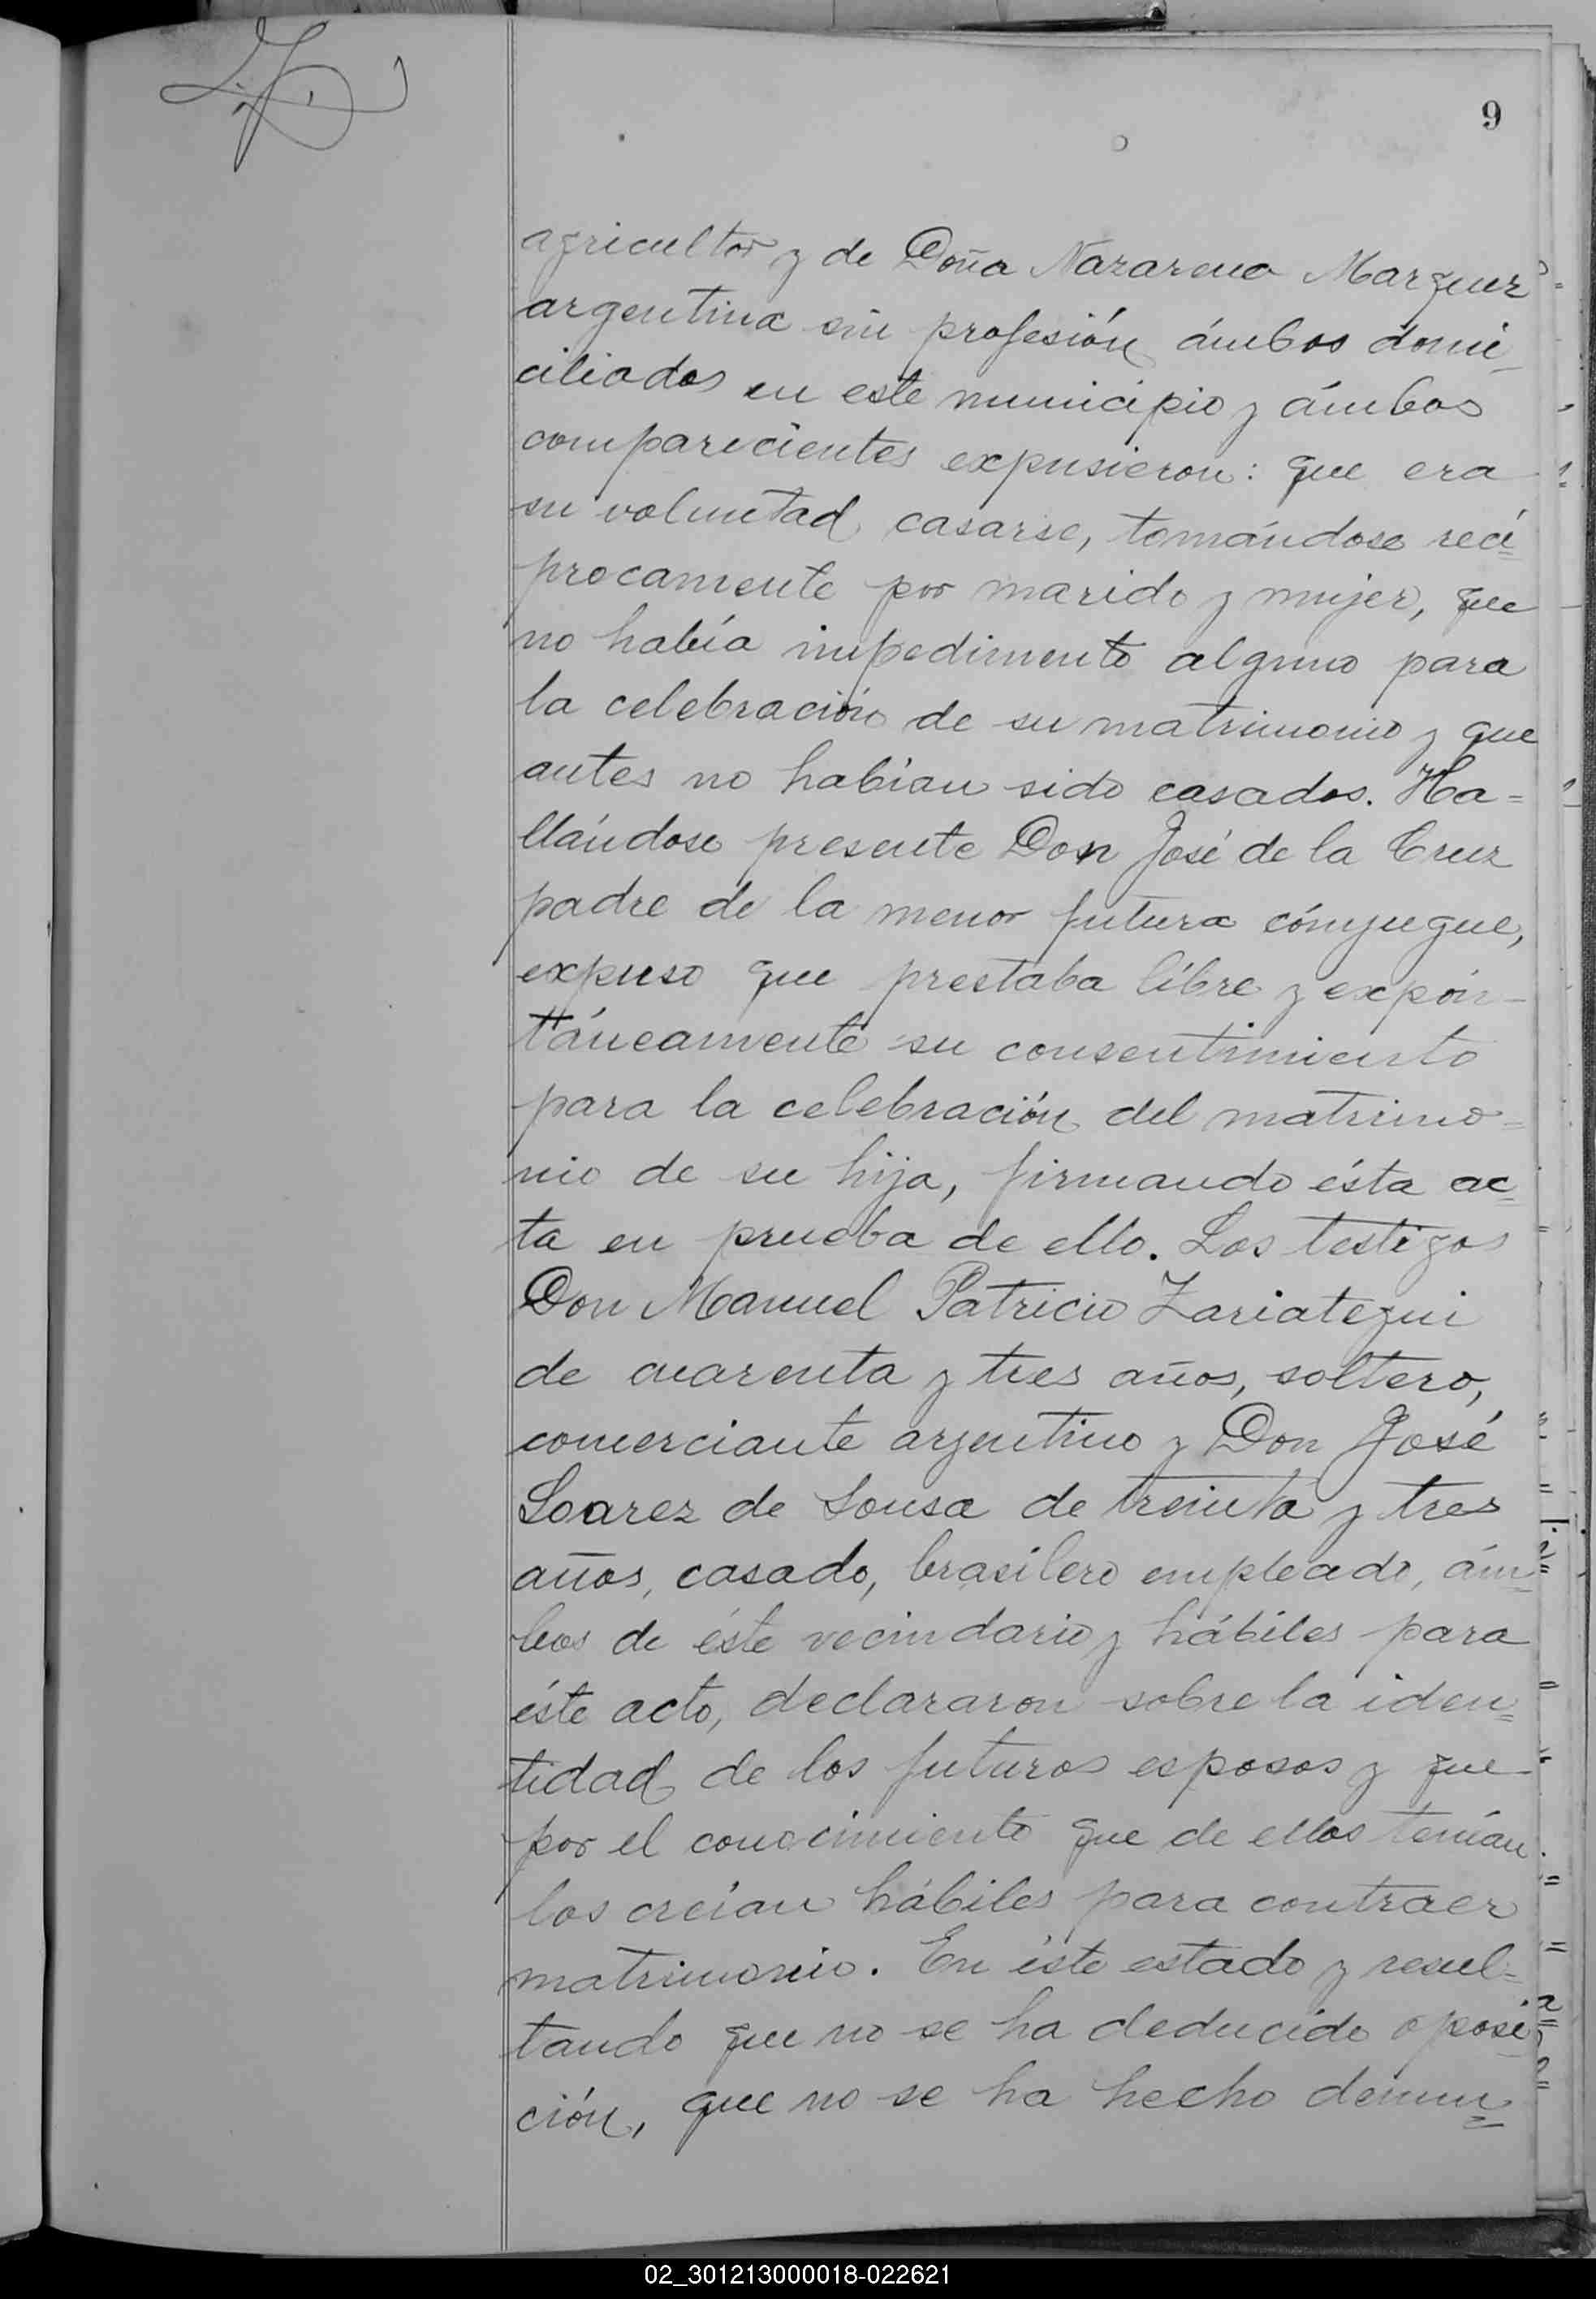 9
agricultor y de Doña Nazarena Marquez
argentina sin profesión ámbos domi-
ciliados en este municipio y ámbos
comparecientes expusieron: que era
su voluntad casarse, tomándose recí=
procamente por marido y mujer, que
no había impedimento alguno para
la celebración de su matrimonio y que
antes no habían sido casados. Ha=
llándose presente Don José de la Cruz
padre de la menor futura cónyugue,
expuso que prestaba líbre y expón-
táneamente su consentimiento
para la celebración del matrimo=
nio de su hija, firmando ésta ac=
ta en prueba de ello. Los testigos
Don Manuel Patricio Zariategui
de cuarenta y tres años, soltero,
comerciante argentino y Don José
Soarez de Sousa de treinta y tres
años, casado, brasilero empleado, ám=
bos de éste vecindario y hábiles para
éste acto, declararon sobre la iden=
tidad de los futuros esposos y que
por el conocimiento que de ellos tenían
los creían hábiles para contraer
matrimonio. En éste estado y resul=
tando que no se ha deducido oposi=
ción, que no se ha hecho denun=
02_301213000018-022621